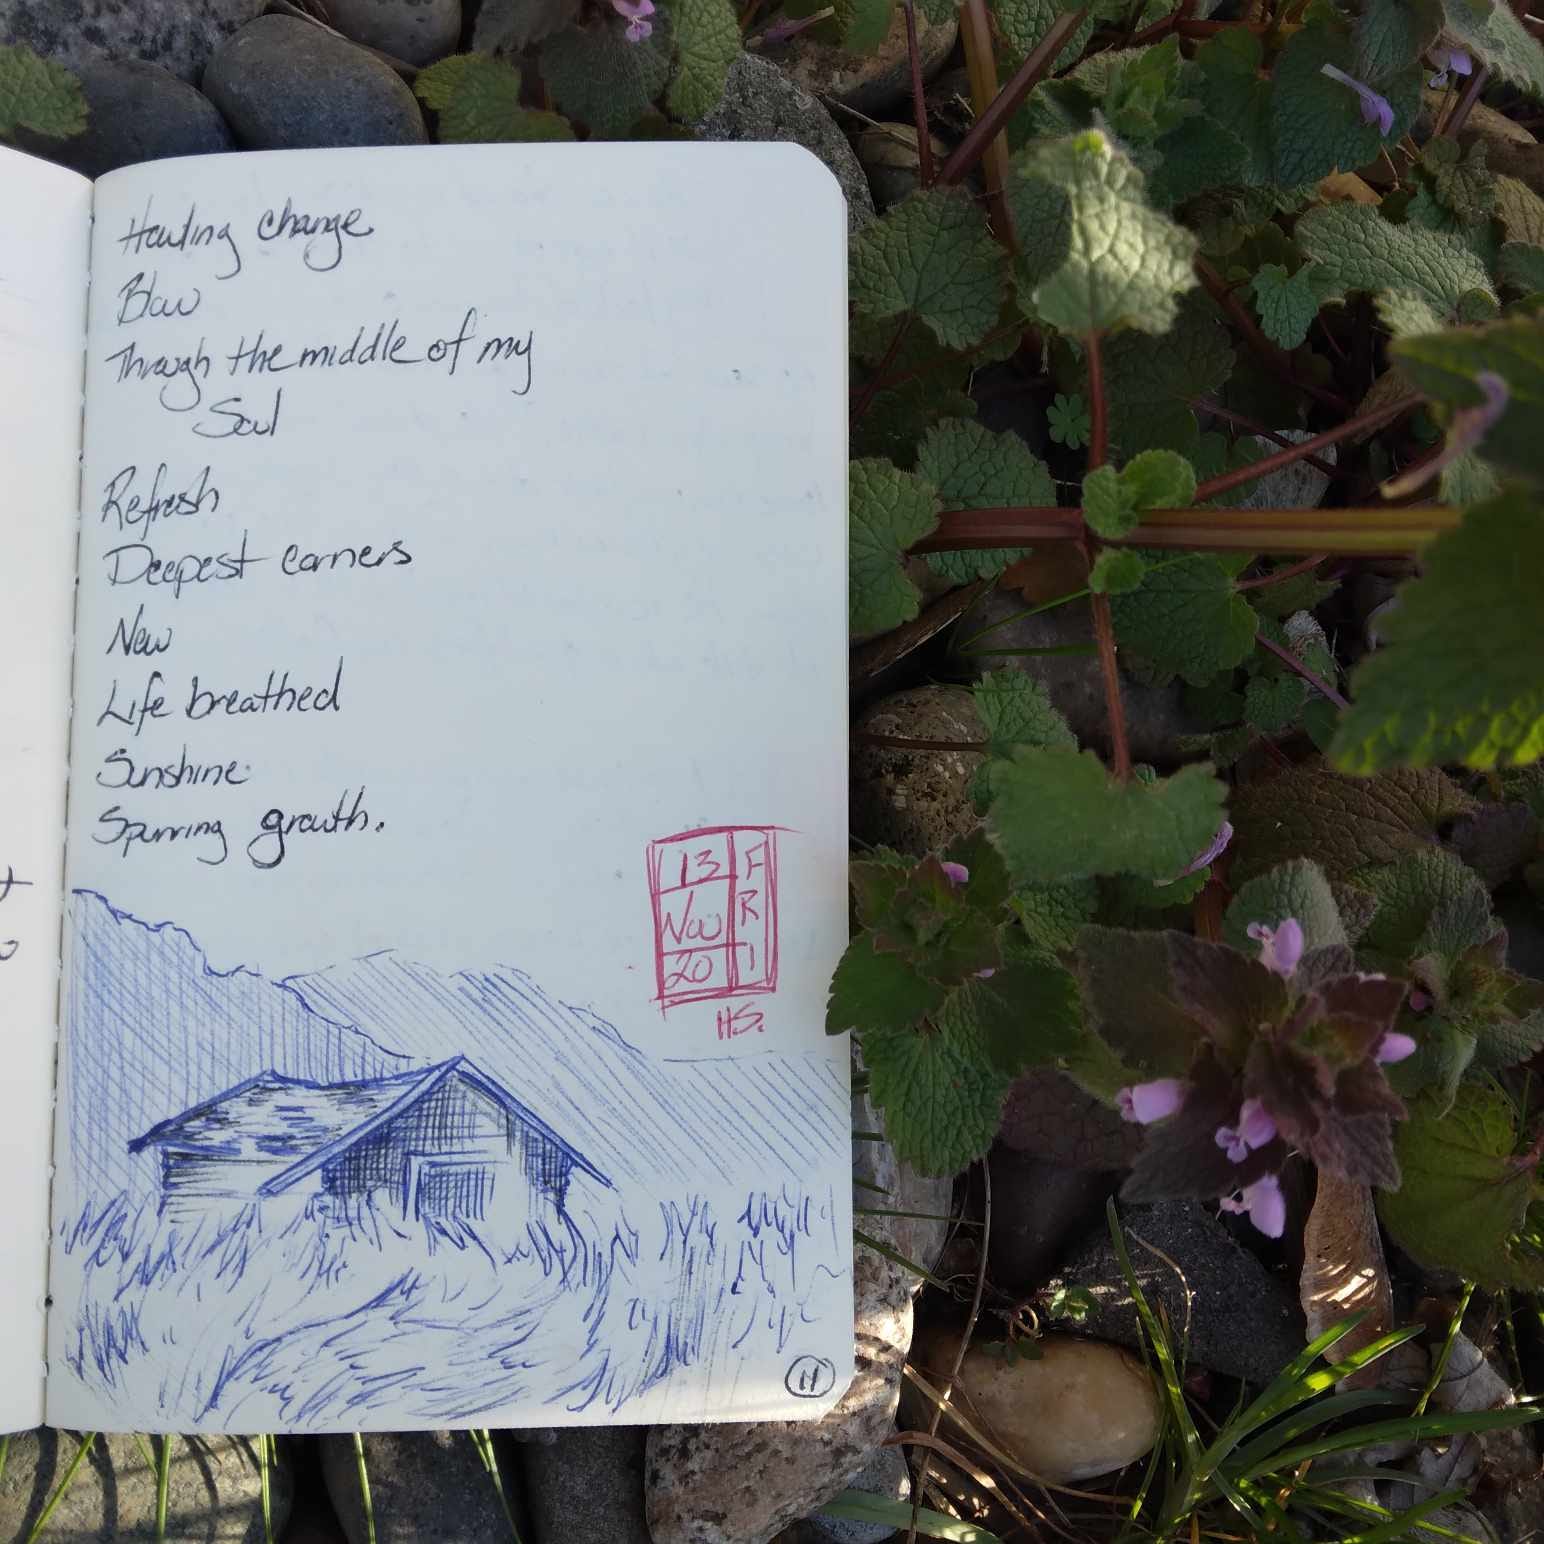 Howling change
Blow
Through the middle of my
Soul
Refresh
Deepest corners
New
Life breathed
Sunshine
Spurring growth.
13
Nov
20
FRI
HS.
11